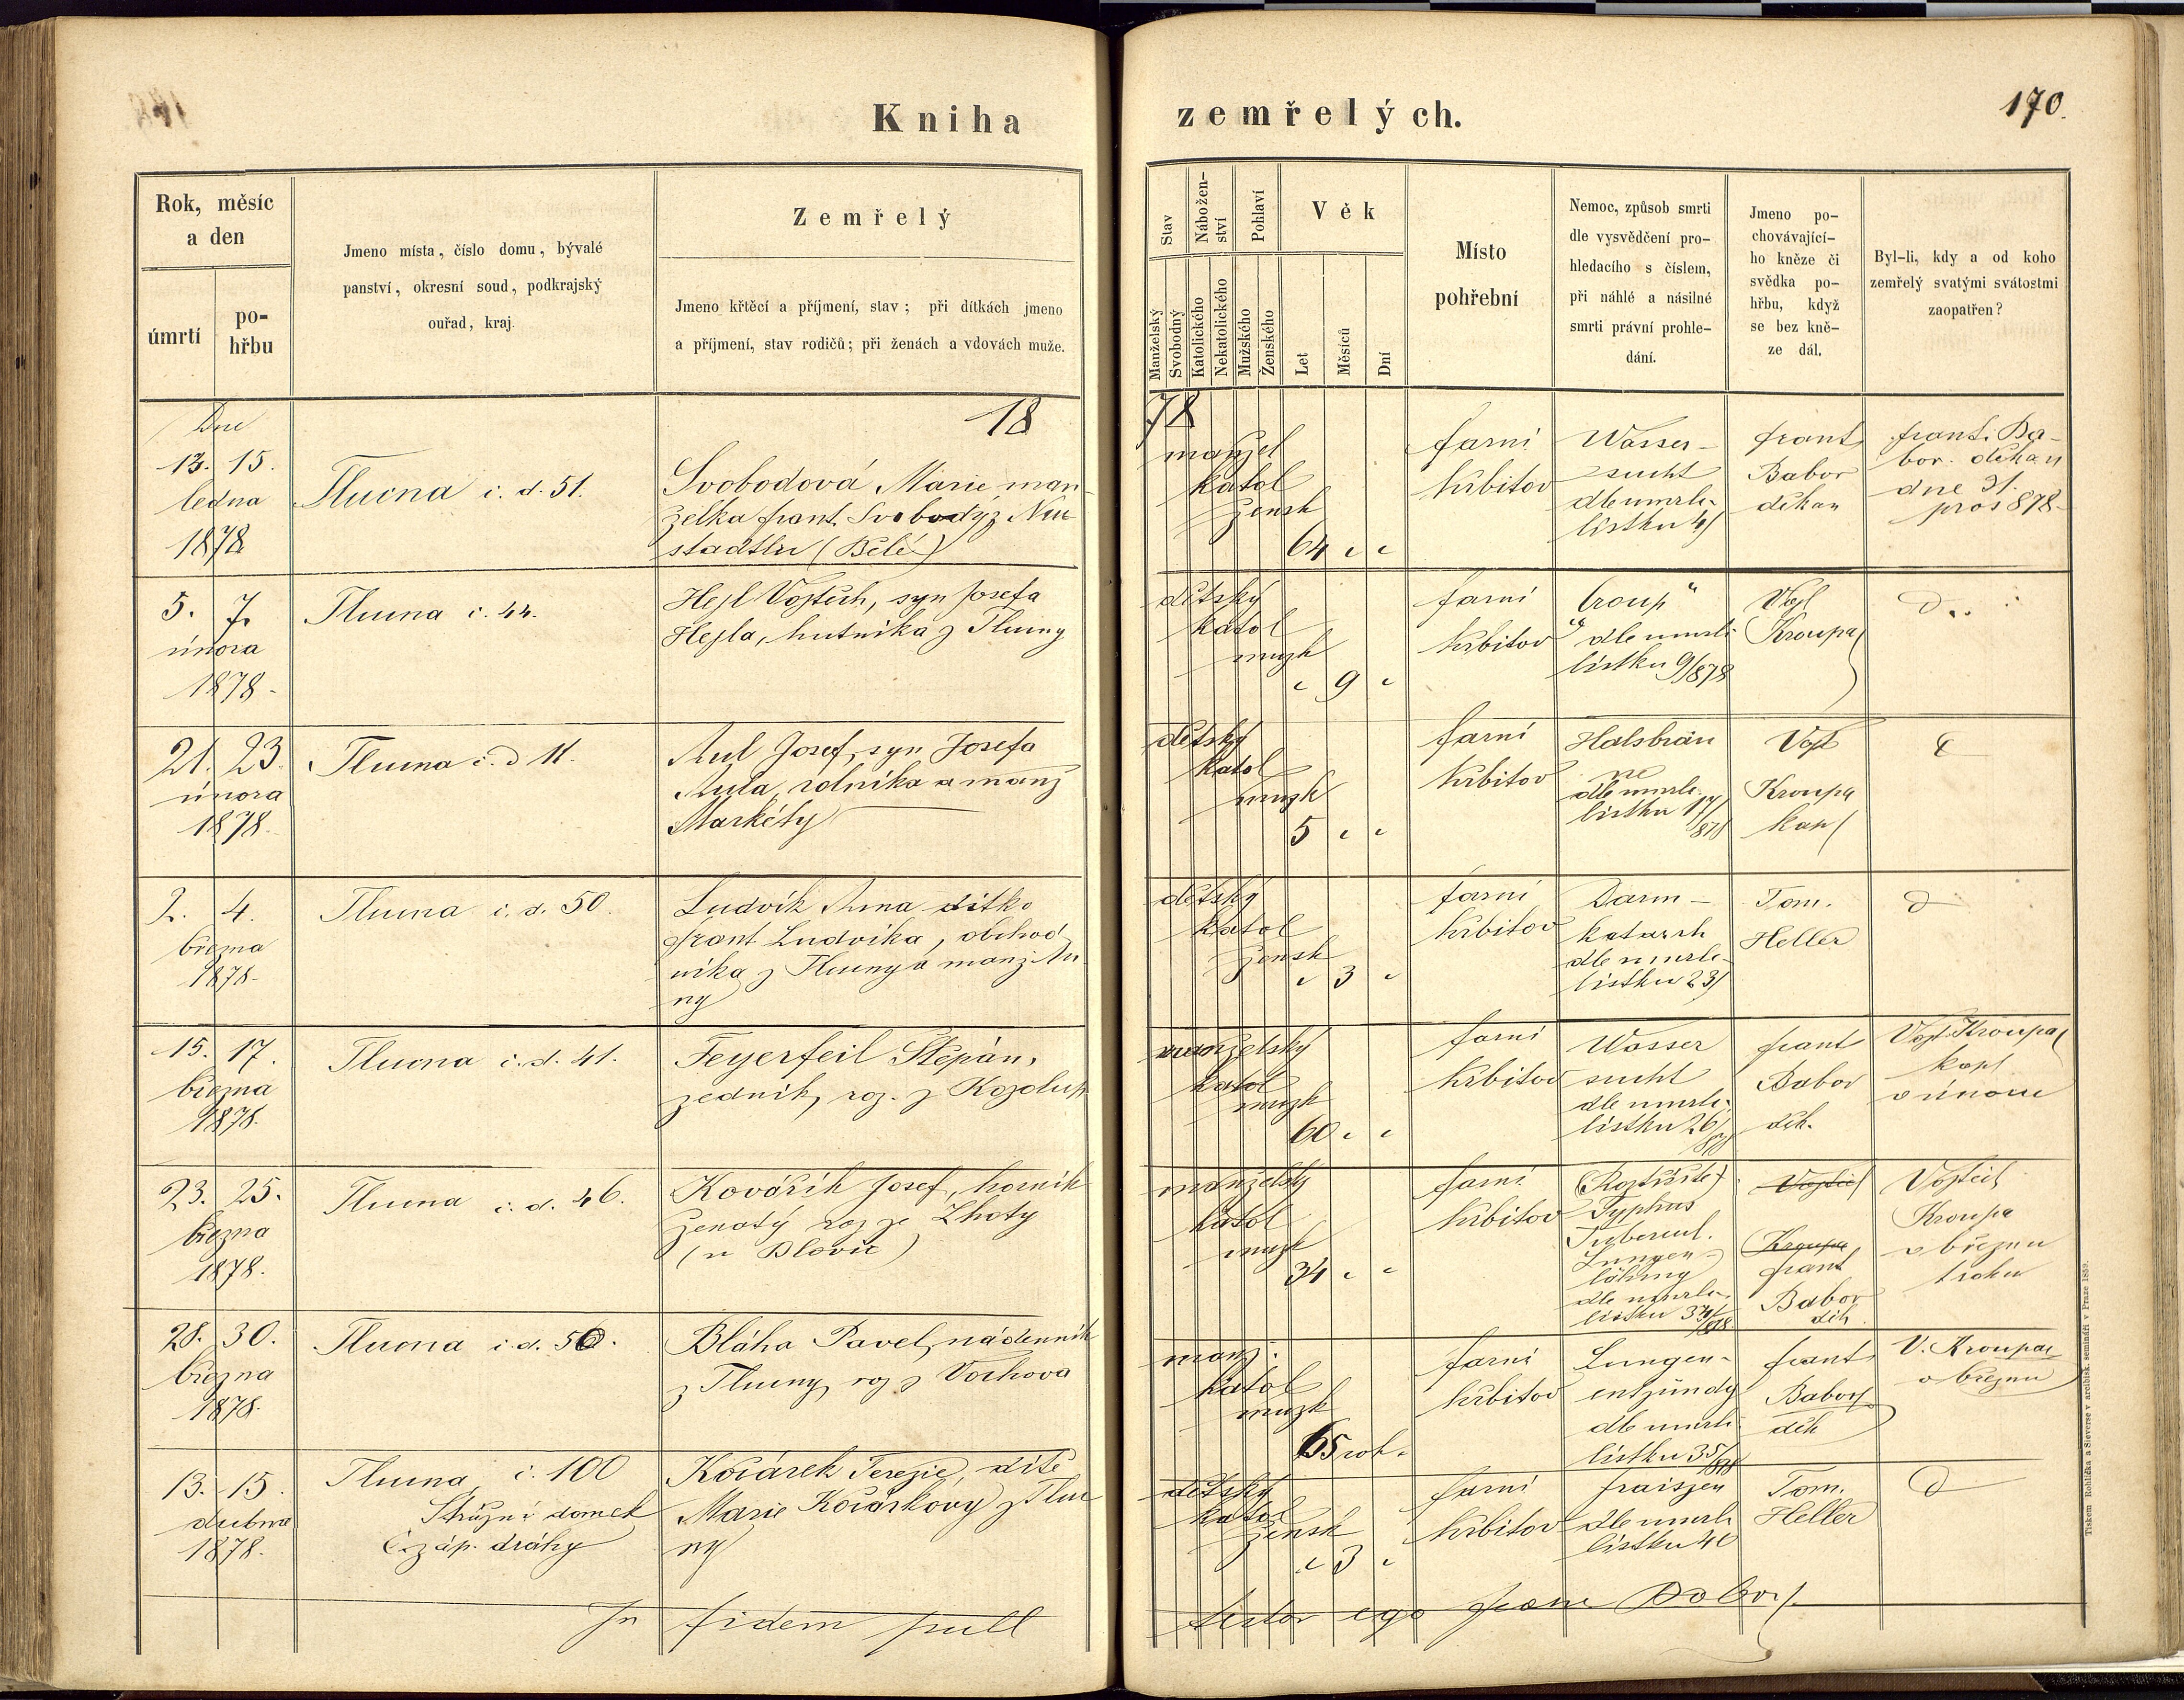 Kniha zemřelých.
170.
Rok, měsíc
a den
úmrtí
po-
hřbu
Jmeno místa, číslo domu, bývalé
panství, okresní soud, podkrajský
ouřad, kraj.
Zemřelý
Jmeno křtěcí a příjmení, stav; při dítkách jmeno
a příjmení, stav rodičů; při ženách a vdovách muže.
Stav
Manželský
Svobodný
Nábožen-
ství
Katolického
Nekatolického
Pohlaví
Mužského
Ženského
Věk
Let
Měsíců
Dní
Místo
pohřební
Nemoc, způsob smrti
dle vysvědčení pro-
hledacího s číslem,
při náhlé a násilné
smrti právní prohle-
dání.
Jmeno po-
chovávající-
ho kněze či
svědka po-
hřbu, když
se bez kně-
ze dál.
Byl-li, kdy a od koho
zemřelý svatými svátostmi
zaopatřen?
18 78
Dne
13. 15.
ledna
1878
Tlucna č. d. 51.
Svobodová Marie man-
želka frant. Svobody z Neu
stadtlu (Bělé)
manžel
katol
žensk
64 " "
farní
hřbitov
Wasser-
sucht
dle umrlč.
lístku 4/
frant
Babor
děkan
frant. Ba-
bor. děkan
dne 31.
pros 878.
5. 7.
února
1878.
Tlucna č. 44.
Hejl Vojtěch, syn Josefa
Hejla, hutníka z Tlucny
dětský
katol
mužk
" 9 "
farní
hřbitov
"Croup"
dle umrlč
lístku 9/878
Vojt
Kroupa
21. 23.
února
1878.
Tlucna č. d 11.
Aul Josef, syn Josefa
Aula, rolníka a manž
Markéty
dětský
katol
mužk
5 " "
farní
hřbitov
Halsbräu
ne
dle umrlč.
lístku 17/
878
Vojt
Kroupa
kap/
2. 4.
března
1878.
Tlucna č. d. 50.
Ludvík Anna dítko
frant Ludvíka, obchod
níka z Tlucny a manž. An
ny
dětský
katol
žensk
" 3 "
farní
hřbitov
Darm-
katarrh
dle umrlč-
lístku 23/
Tom.
Heller
15. 17.
března
1878.
Tlucna č. d. 41.
Feyerfeil Štěpán,
zedník, roz. z Kozolup
manželský
katol
mužk
60 " "
farní
hřbitov
Wasser
sucht
dle umrlč.
lístku 26/
878
frant
Babor
děk.
Vojt. Kroupa
kapl
v únoru
23. 25.
března
1878.
Tlucna č. d. 46.
Kovářík Josef, horník
ženatý roz ze Lhoty
(u Blovic)
manželský
katol
mužk
34 " "
farní
hřbitov
Typhus
Tubercul.
Lungen-
lähmg
dle umrlč.
lístku 34/
878
Vojtěch
Kroupa
frant
Babor
děk
Vojtěch
Kroupa
v březnu
t roku
28. 30.
března
1878.
Tlucna č. d. 50.
Bláha Pavel, nádenník
z Tlucny, roz z Vochova
manž.
katol
mužk
65 rok.
farní
hřbitov
Lungen-
entzündg
dle umrlč
lístku 35/
878
frant
Babor
děk
V. Kroupa
v březnu
13. 15.
dubna
1878.
Tlucna č. 100
Strážní domek
Č. záp. dráhy
Kočárek Terezie, dítě
Marie Kočárkový z Tluc
ny
dětský
katol
žensk
" 3 "
farní
hřbitov
fraiszen
dle umrlč
lístku 40
Tom.
Heller
In fidem
testor ego Babor
Tiskem Rohlíčka a Sieverse v arcibisk. semináři v Praze 1859.